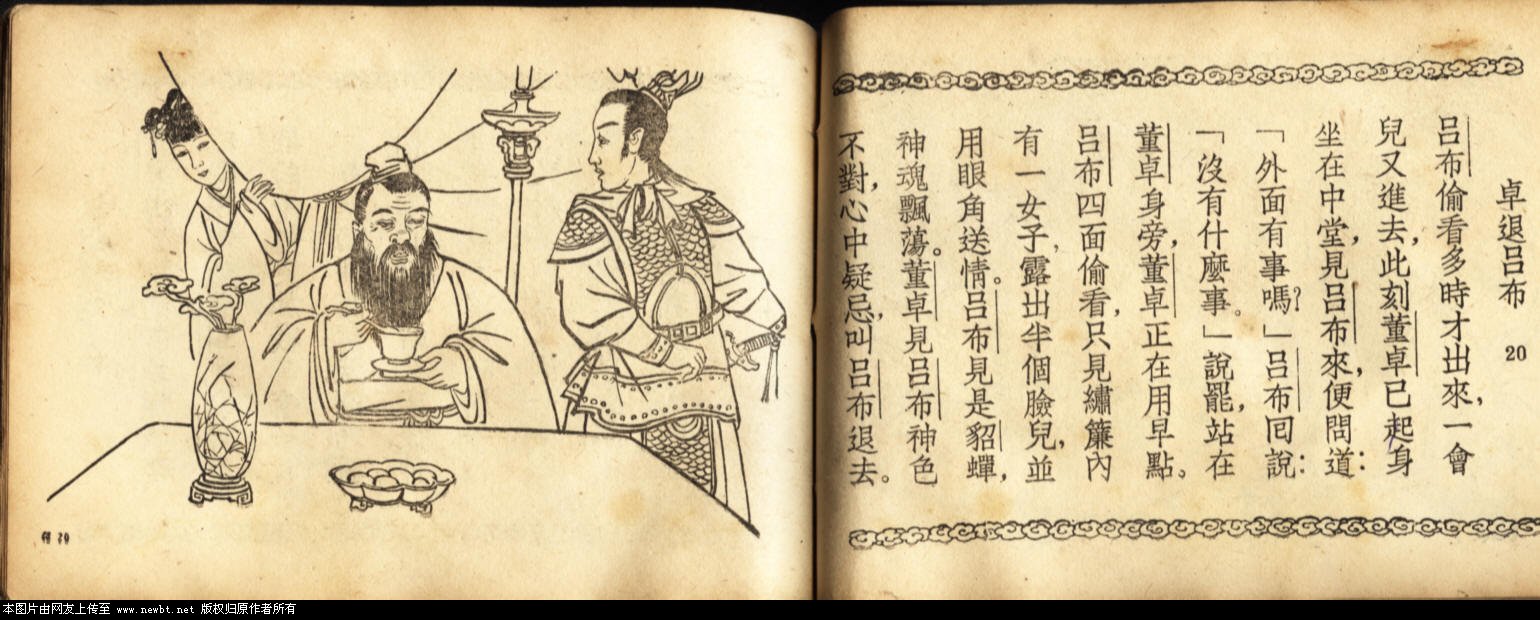 卓退呂布 20
呂布偷看多時才出來,一會
兒又進去,此刻董卓已起身
坐在中堂,見呂布來,便問道:
「外面有事嗎?」呂布囘說:
「沒有什麼事。」說罷,站在
董卓身旁,董卓正在用早點。
呂布四面偷看,只見繡簾內
有一女子,露出半個臉兒,並
用眼角送情。呂布見是貂蟬,
神魂飄蕩。董卓見呂布神色
不對,心中疑忌,叫呂布退去。
20
本图片由网友上传至 www.newbt.net 版权归原作者所有